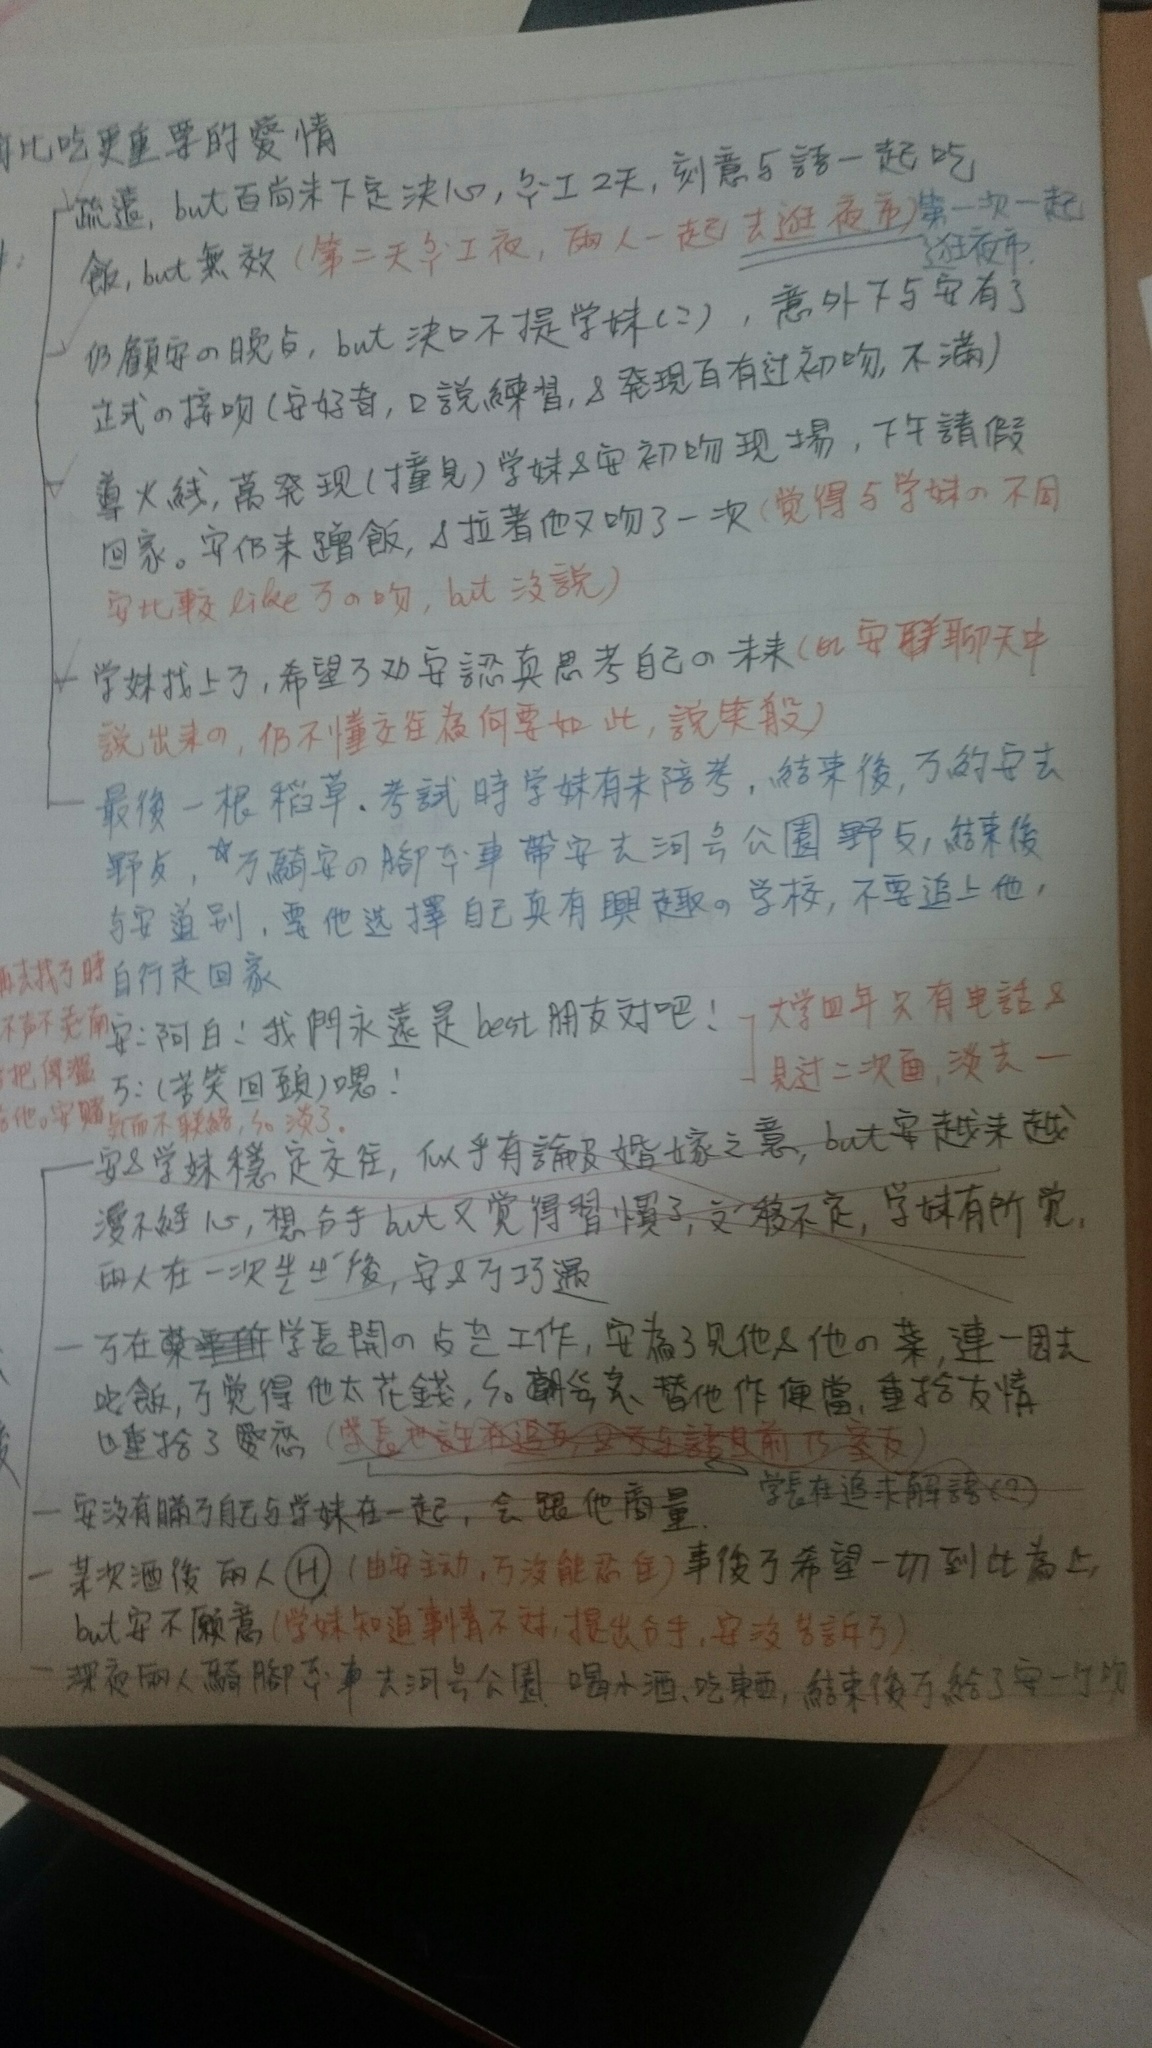 比吃更重要的愛情
疏遠, but百尚未下定決心, 分工2天, 刻意与語一起吃
飯, but無效 (第二天分工夜, 兩人一起去逛夜市) 第一次一起
逛夜市.
仍顧安の晚点, but 決口不提学妹(二), 意外下与安有了
正式の接吻(安好奇, 口說練習, &發現百有过初吻, 不滿)
導火線, 萬發現(撞見)学妹&安初吻現場, 下午請假
回家。安仍来蹭飯, &拉著他又吻了一次(觉得与学妹の不同
安比較like万の吻, but 沒說)
学妹找上万, 希望万劝安認真思考自己の未来(此安聊天中
說出来の, 仍不懂交往為何要如此, 說笑般)
最後一根稻草. 考試時学妹有未陪考, 結束後, 万約安去
野点, ☆万騎安の腳本車帶安去河号公園野点, 結束後
与安道别, 要他选擇自己真有興趣の学校, 不要追上他,
自行走回家
再去找万時
安:阿白!我們永遠是best朋友对吧!
大学四年只有电話&
見过二次面, 淡去一
万:(苦笑回頭)嗯!
而不联絡, 淡了.
安&学妹穩定交往, 似乎有論及婚嫁之意, but安越来越
漫不經心, 想分手but又觉得習慣了, 游移不定, 学妹有所觉,
兩人在一次后, 安&万巧遇
一万在学長開の点芒工作, 安為了見他&他の菜, 連一周去
吃飯, 万觉得他太花錢, 替他作便當, 重拾友情
也重拾了愛戀
学長在追求解語(?)
一安沒有瞞万自己与学妹在一起, 会跟他商量.
一某次酒後兩人Ⓗ (由安主动, 万沒能忍住) 事後万希望一切到此為止,
but安不願意(学妹知道事情不对, 提出分手, 安沒告訴万)
一深夜兩人騎腳本車去河号公園 喝小酒、吃東西, 結束後万給了安一个吻